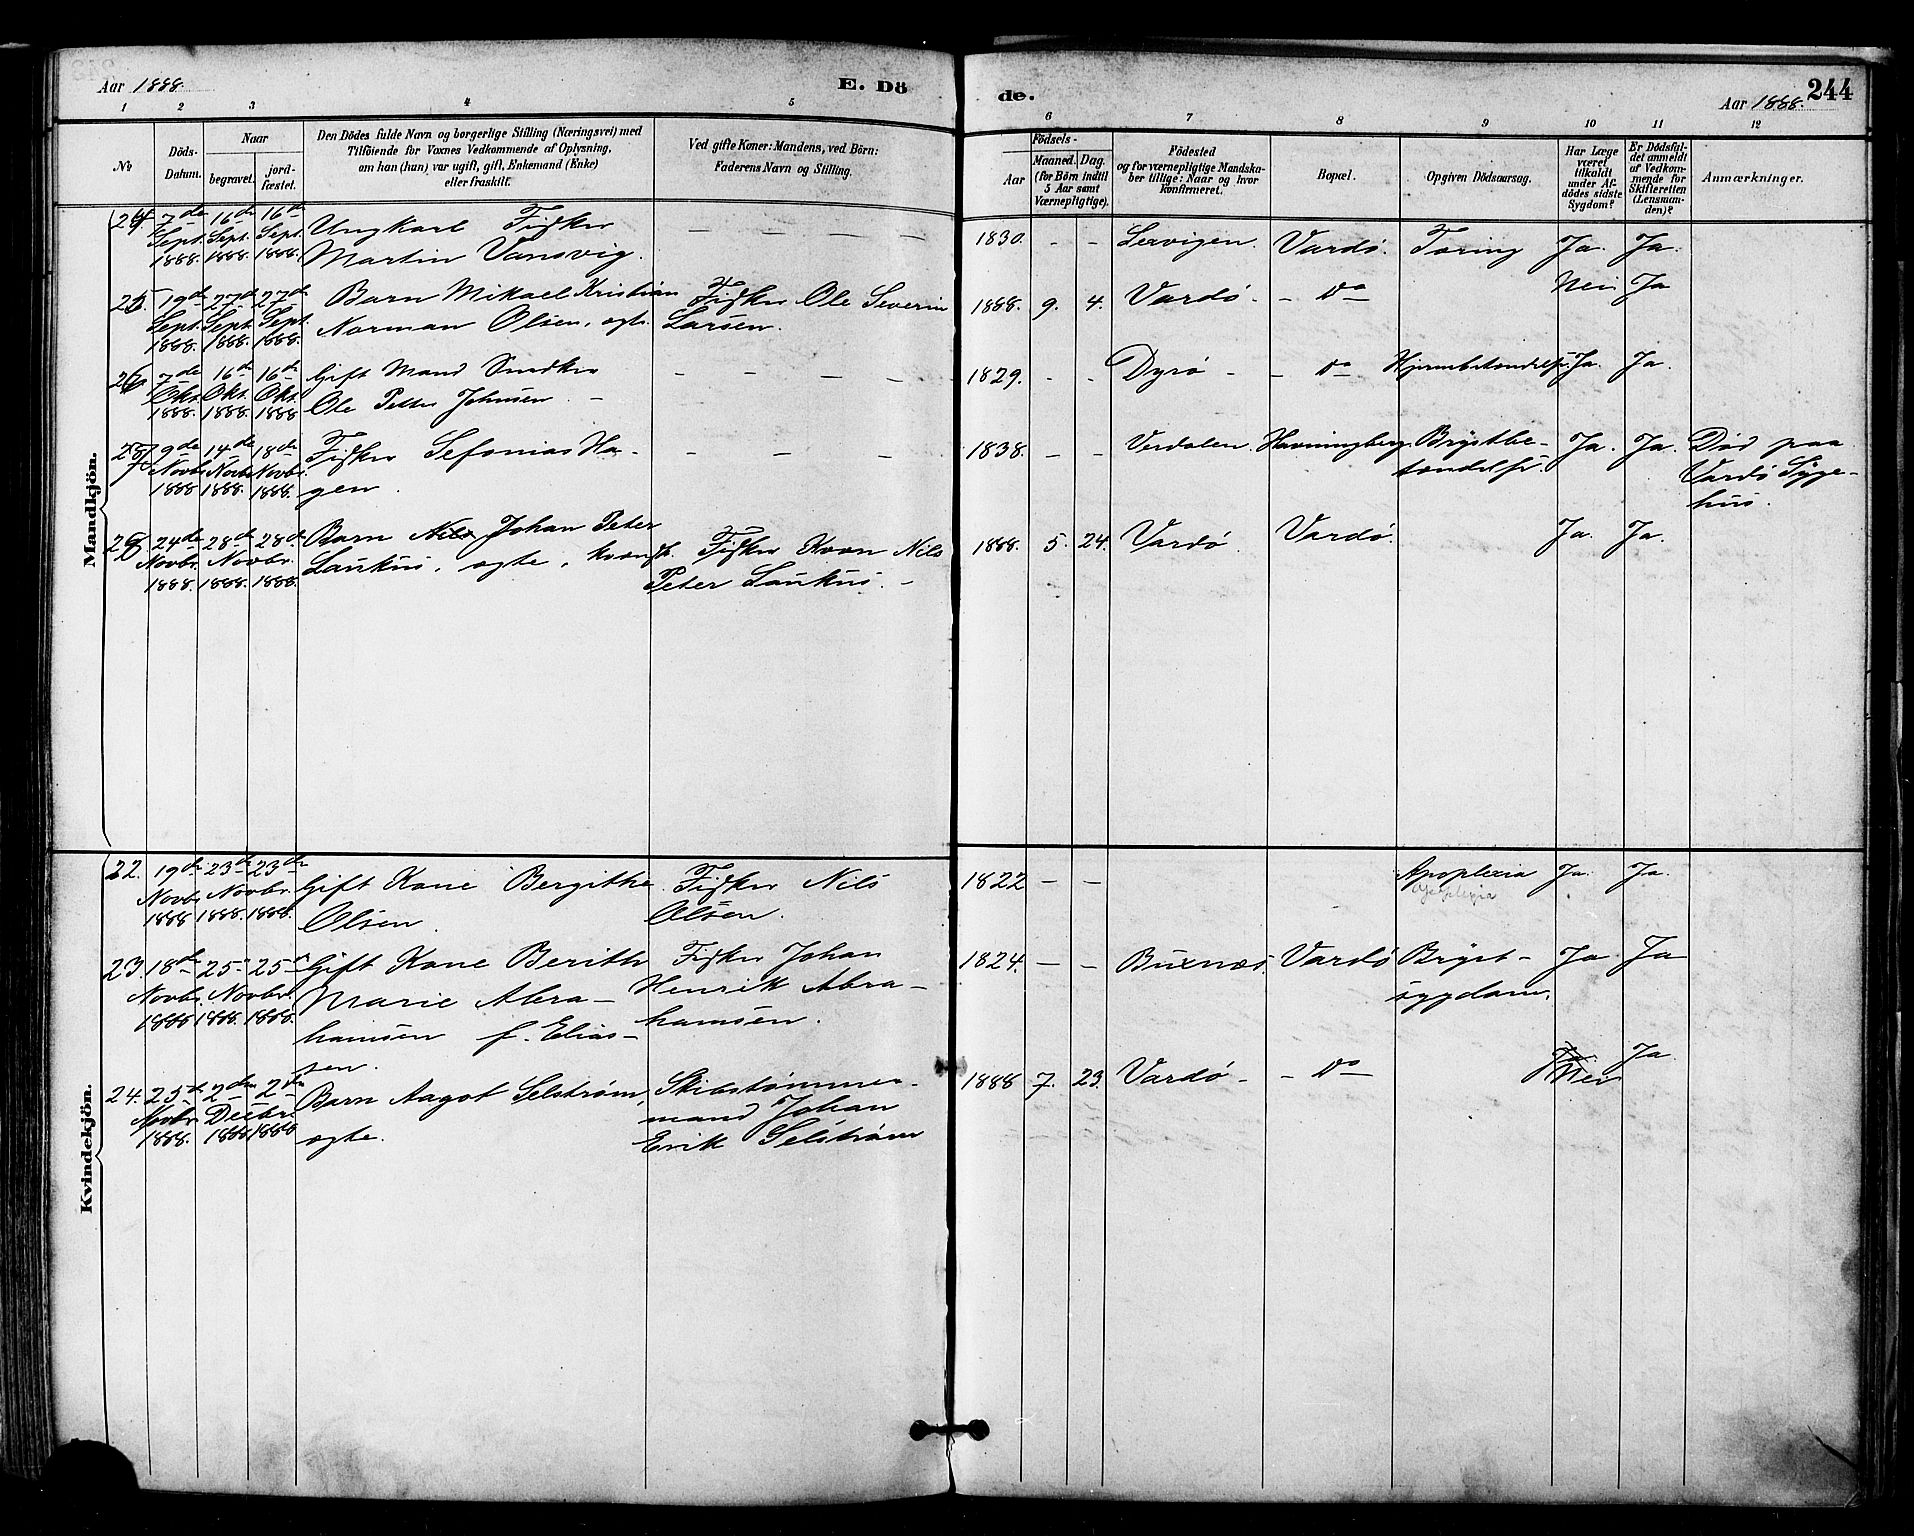 Aar 1888.
E. Dö
de.
Aar 1888.
244
1 2 3 4 5 6 7 8 9 10 11 12
No
Döds-
Datum.
Naar
begravet.
jord-
fæstet.
Den Dödes fulde Navn og borgerlige Stilling (Næringsvei) med
Tilföiende for Voxnes Vedkommende af Oplysning,
om han (hun) var ugift, gift, Enkemand (Enke)
eller fraskilt.
Ved gifte Koner: Mandens, ved Börn:
Faderens Navn og Stilling.
Födsels-
Aar
Maaned. Dag.
(for Börn indtil
5 Aar samt
Værnepligtige).
Födested
og for værnepligtige Mandska-
ber tillige: Naar og hvor
konfirmeret.
Bopæl.
Opgiven Dödsaarsag.
Har Læge
været
tilkaldt
under Af-
dödes sidste
Sygdom?
Er Dödsfal-
det anmeldt
af Vedkom-
mende for
Skifteretten
(Lensman-
den)?
Anmærkninger.
Mandkjön.
24. 7de Sept. 1888. 16de Sept. 1888. 16de Sept. 1888.
Ungkarl Fisker
Martin Vansvig.
1830. - - Lervigen. Vardö. Tæring Ja. Ja.
25. 19de Sept. 1888. 27de Sept. 1888. 27de Sept. 1888.
Barn Mikael Kristian
Norman Olsen, ægte.
Fisker Ole Severin
Larsen.
1888. 9. 4. Vardö - do Nei Ja
26. 7de Okt. 1888. 16de Okt. 1888. 16de Okt. 1888.
Gift Mand Snedker
Ole Petter Johnsen.
1829. - - Dyrö - do Ja. Ja.
27. 9de Novbr. 1888 14de Novbr. 1888. 18de Novbr. 1888.
Fisker Sefonias Ha-
gen.
1838. - - Verdalen. Havningberg. Brystbe-
tændelse. Ja. Ja. Död paa
Vardö Syge-
hus.
28. 24de Novbr. 1888. 28de Novbr. 1888. 28de Novbr. 1888.
Barn Nils Johan Peter
Laukus, ægte, kvænsk.
Fisker Kvæn Nils
Peter Laukus.
1888. 5. 24. Vardö. Vardö. Ja. Ja.
Kvindekjön.
22. 19de Novbr. 1888 23de Novbr. 1888. 23de Novbr. 1888.
Gift Kone Bergithe
Olsen.
Fisker Nils
Olsen.
1822 - - Apoplexia Ja. Ja.
23. 18de Novbr. 1888 25 Novbr. 1888. 25 Novbr. 1888.
Gift Kone Berith
Marie Abra-
hamsen f. Elias-
sen.
Fisker Johan
Henrik Abra-
hamsen.
1824. - - Buxnæs. Vardö Bryst-
sygdom. Ja Ja
24. 25de Novbr. 1888. 2den Decbr. 1888 2den Decbr. 1888
Barn Aagot Selström,
ægte.
Skibstömmer-
mand Johan
Erik Selström
1888 7. 23. Vardö - do Nei Ja